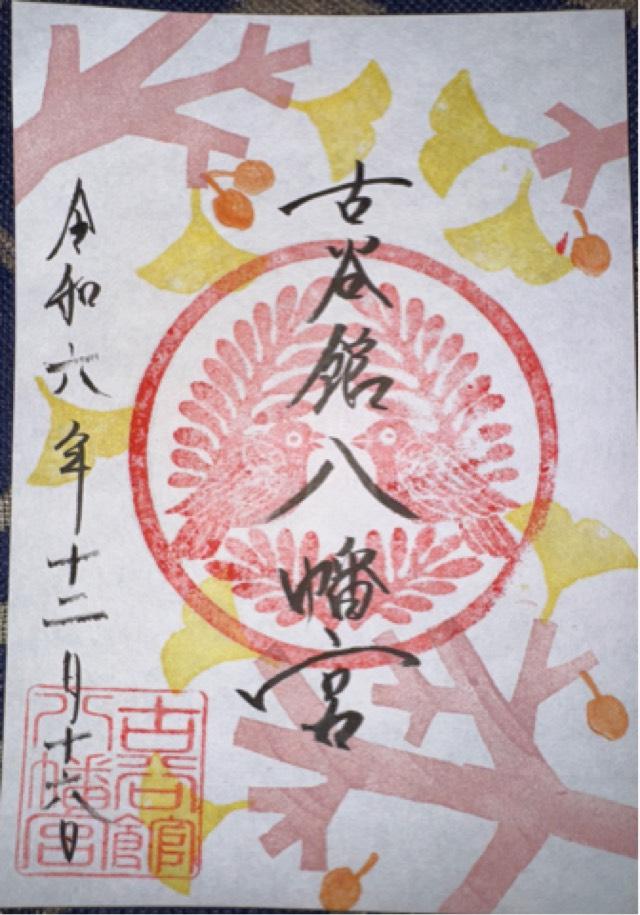 古谷館八幡宮
令和六年十二月十六日
古谷館
八幡宮